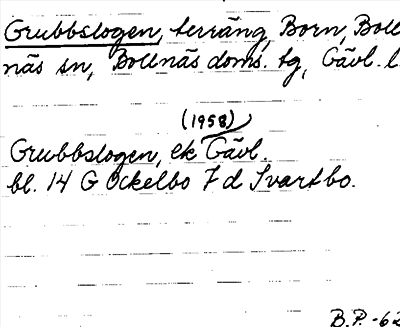 Grubbslogen, terräng, Born, Boll
näs sn, Bollnäs doms. tg, Gävl. l.
(1958)
Grubbslogen, ek Gävl.
bl. 14 G Ockelbo 7 d Svartbo.
B.P. -62